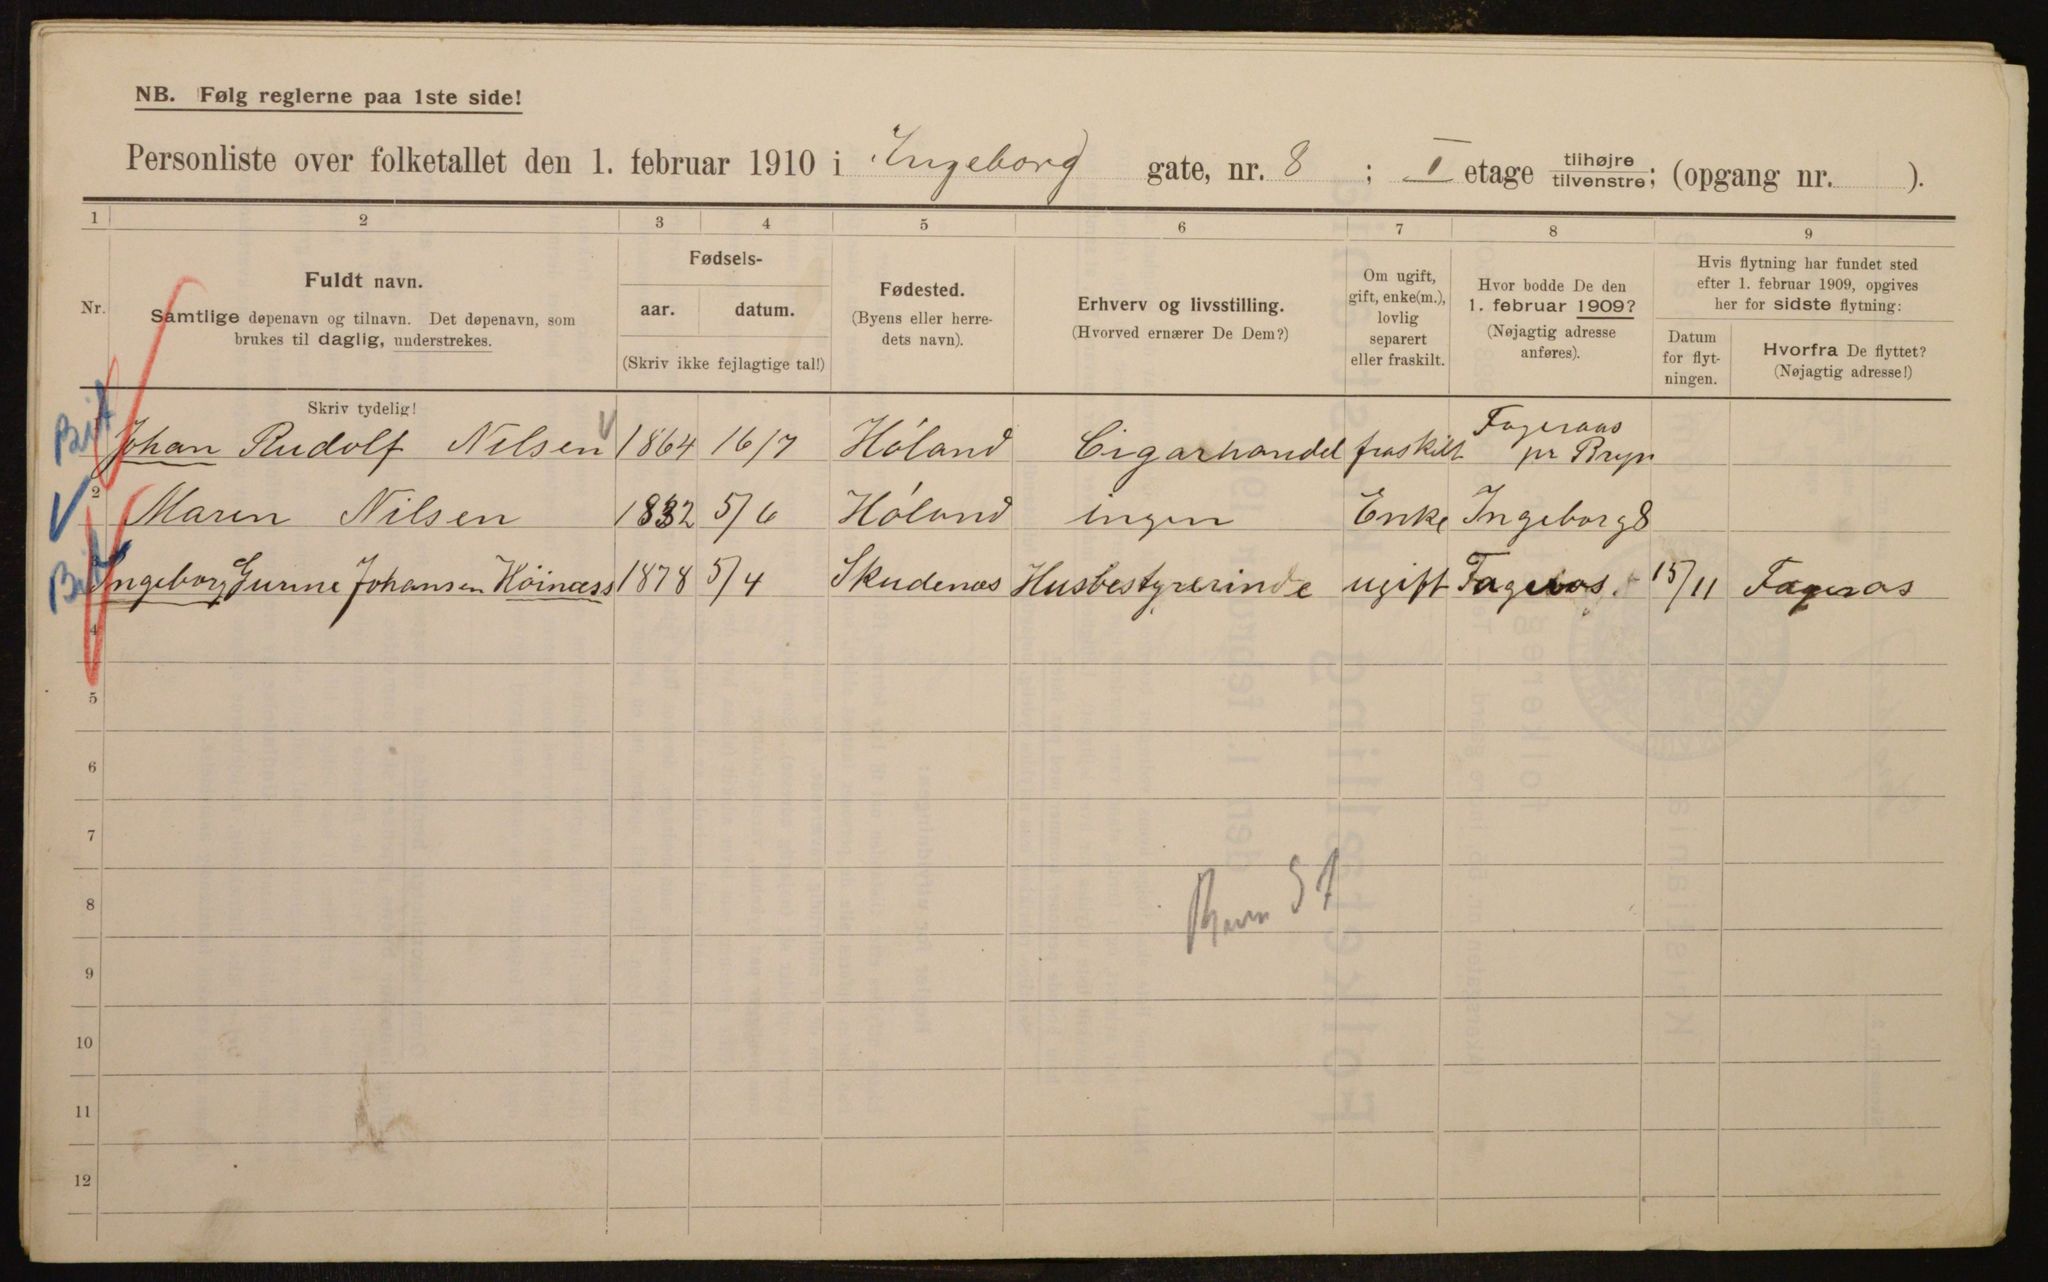 NB. Følg reglerne paa 1ste side!
Personliste over folketallet den 1. februar 1910 i Ingeborg gate, nr. 8 ; I etage tilhøjre tilvenstre; (opgang nr. ).
1 2 3 4 5 6 7 8 9
Nr.
Fuldt navn.
Samtlige døpenavn og tilnavn. Det døpenavn, som
brukes til daglig, understrekes.
Fødsels-
aar. datum.
(Skriv ikke fejlagtige tal!)
Fødested.
(Byens eller herre-
dets navn).
Erhverv og livsstilling.
(Hvorved ernærer De Dem?)
Om ugift,
gift, enke(m.),
lovlig
separert
eller fraskilt.
Hvor bodde De den
1. februar 1909?
(Nøjagtig adresse
anføres).
Hvis flytning har fundet sted
efter 1. februar 1909, opgives
her for sidste flytning:
Datum
for flyt-
ningen.
Hvorfra De flyttet?
(Nøjagtig adresse!)
Skriv tydelig!
Johan Rudolf Nilsen 1864 16/7 Høland Cigarhandel fraskilt Fageraas pr Bryn
2 Maren Nilsen 1832 5/6 Høland ingen Enke Ingeborg 8
Ingeborg Gurine Johansen Höinæss 1878 5/4 Skudenæs Husbestyrerinde ugift Fageraas 15/11 Fageraas
4
5
6
7
8
9
10
11
12